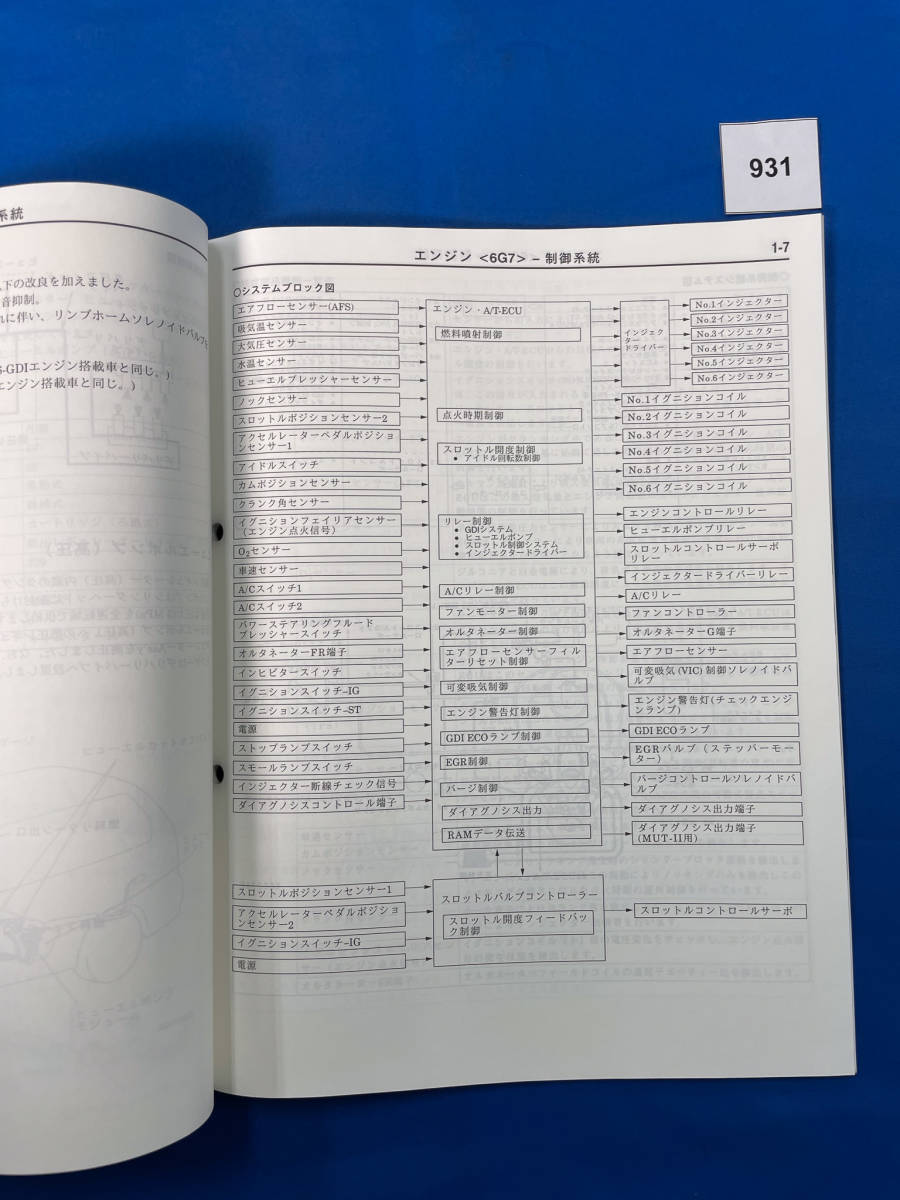 931
系統
下の改良を加えました。
音抑制。
れに伴い、リンプホームソレノイドバルブ
6-GDIエンジン搭載車と同じ。)
エンジン搭載車と同じ。)
エンジン <6G7> – 制御系統
1-7
○システムブロック図
エアフローセンサー(AFS)
吸気温センサー
大気圧センサー
水温センサー
ヒューエルプレッシャーセンサー
ノックセンサー
スロットルポジションセンサー2
アクセルレーターペダルポジショ
ンセンサー1
アイドルスイッチ
カムポジションセンサー
クランク角センサー
イグニションフェイリアセンサー
(エンジン点火信号)
O2センサー
車速センサー
A/Cスイッチ1
A/Cスイッチ2
パワーステアリングフルード
プレッシャースイッチ
オルタネーターFR端子
インヒビタースイッチ
イグニションスイッチ–IG
イグニションスイッチ–ST
電源
ストップランプスイッチ
スモールランプスイッチ
インジェクター断線チェック信号
ダイアグノシスコントロール端子
エンジン・A/T-ECU
燃料噴射制御
点火時期制御
スロットル開度制御
● アイドル回転数制御
リレー制御
● GDIシステム
● ヒューエルポンプ
● スロットル制御システム
● インジェクタードライバー
A/Cリレー制御
ファンモーター制御
オルタネーター制御
エアフローセンサーフィル
ターリセット制御
可変吸気制御
エンジン警告灯制御
GDI ECOランプ制御
EGR制御
パージ制御
ダイアグノシス出力
RAMデータ伝送
インジェク
タードライバー
No.1インジェクター
No.2インジェクター
No.3インジェクター
No.4インジェクター
No.5インジェクター
No.6インジェクター
No.1イグニションコイル
No.2イグニションコイル
No.3イグニションコイル
No.4イグニションコイル
No.5イグニションコイル
No.6イグニションコイル
エンジンコントロールリレー
ヒューエルポンプリレー
スロットルコントロールサーボ
リレー
インジェクタードライバーリレー
A/Cリレー
ファンコントローラー
オルタネーターG端子
エアフローセンサー
可変吸気(VIC)制御ソレノイドバ
ルブ
エンジン警告灯(チェックエンジ
ンランプ)
GDI ECOランプ
EGRバルブ(ステッパーモー
ター)
パージコントロールソレノイドバ
ルブ
ダイアグノシス出力端子
ダイアグノシス出力端子
(MUT-II用)
スロットルポジションセンサー1
アクセルレーターペダルポジショ
ンセンサー2
イグニションスイッチ–IG
電源
スロットルバルブコントローラー
スロットル開度フィードバッ
ク制御
スロットルコントロールサーボ